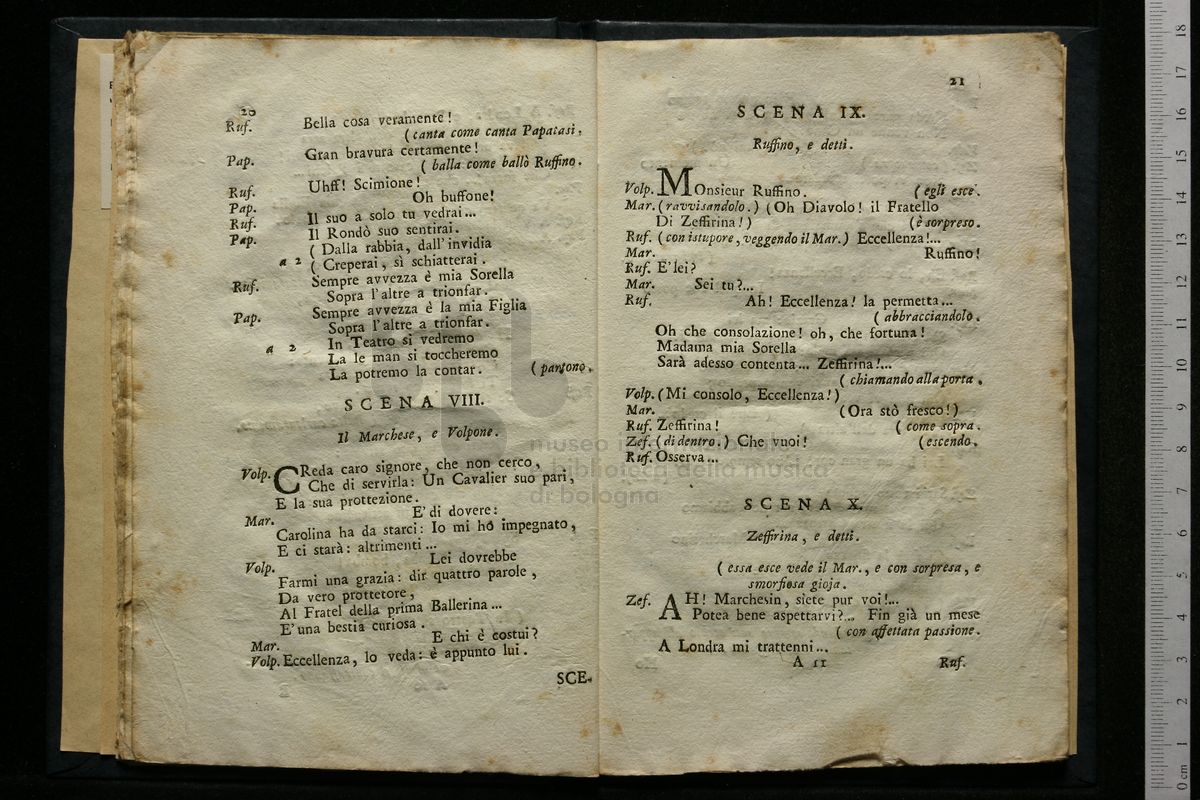 20
Ruf. Bella cosa veramente!
(canta come canta Papatasi.
Pap. Gran bravura certamente!
(balla come ballò Ruffino.
Ruf. Uhff! Scimione!
Pap. Oh buffone!
Ruf. Il suo a solo tu vedrai...
Pap. Il Rondò suo sentirai.
a 2 ( Dalla rabbia, dall'invidia
( Creperai, sì schiatterai.
Ruf. Sempre avvezza è mia Sorella
Sopra l'altre a trionfar.
Pap. Sempre avvezza è la mia Figlia
Sopra l'altre a trionfar.
a 2 In Teatro si vedremo
La le man si toccheremo
La potremo la contar. (partono.
SCENA VIII.
Il Marchese, e Volpone.
Volp. CReda caro signore, che non cerco,
Che di servirla: Un Cavalier suo pari,
E la sua prottezione.
Mar. E' di dovere:
Carolina ha da starci: Io mi hò impegnato,
E ci starà: altrimenti...
Volp. Lei dovrebbe
Farmi una grazia: dir quattro parole,
Da vero prottetore,
Al Fratel della prima Ballerina...
E' una bestia curiosa.
Mar. E chi è costui?
Volp. Eccellenza, lo veda: è appunto lui.
SCE-
21
SCENA IX.
Ruffino, e detti.
Volp. MOnsieur Ruffino. (egli esce.
Mar. (ravvisandolo.) (Oh Diavolo! il Fratello
Di Zeffirina!) (è sorpreso.
Ruf. (con istupore, veggendo il Mar.) Eccellenza!...
Mar. Ruffino!
Ruf. E' lei?
Mar. Sei tu?...
Ruf. Ah! Eccellenza! la permetta...
(abbracciandolo.
Oh che consolazione! oh, che fortuna!
Madama mia Sorella
Sarà adesso contenta... Zeffirina!...
(chiamando alla porta.
Volp. (Mi consolo, Eccellenza!)
Mar. (Ora stò fresco!)
Ruf. Zeffirina! (come sopra.
Zef. (di dentro.) Che vuoi! (escendo.
Ruf. Osserva...
SCENA X.
Zeffirina, e detti.
(essa esce vede il Mar., e con sorpresa, e
smorfiosa gioja.
Zef. AH! Marchesin, siete pur voi!...
Potea bene aspettarvi?... Fin già un mese
(con affettata passione.
A Londra mi trattenni...
A 11 Ruf.
museo internazionale
e biblioteca della musica
di bologna
18
17
16
15
14
13
12
11
10
9
8
7
6
5
4
3
2
1
0 cm